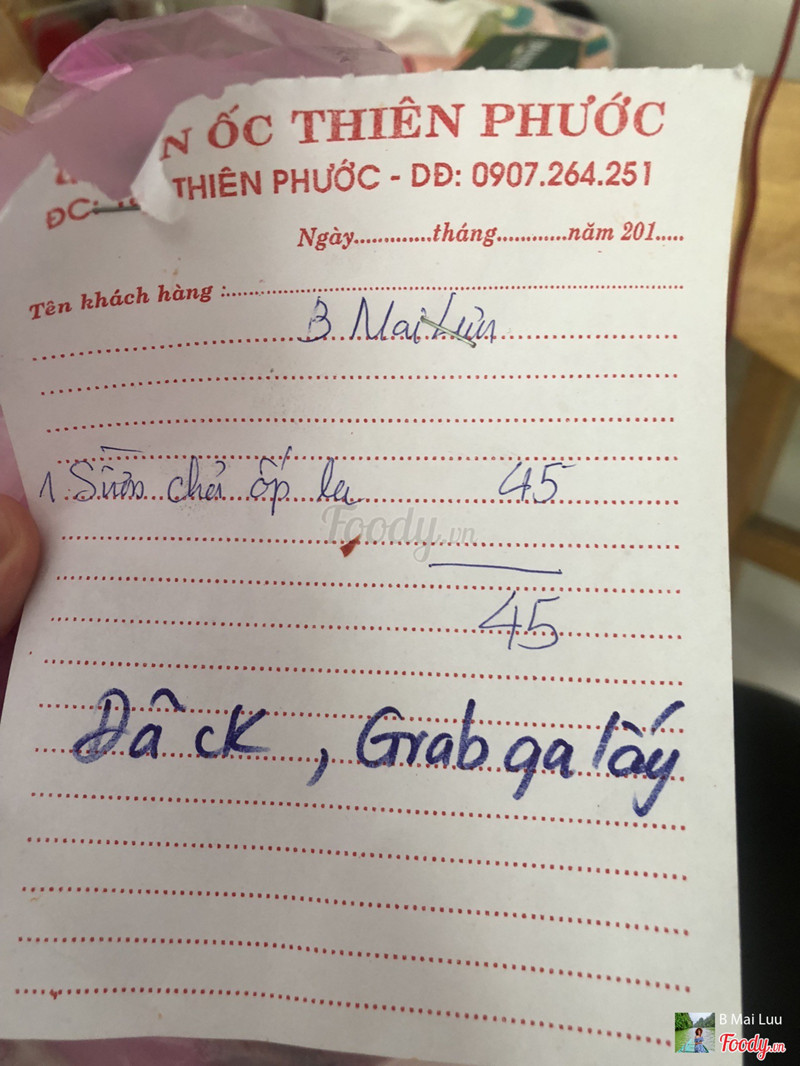 N ỐC THIÊN PHƯỚC
ĐC: THIÊN PHƯỚC - DĐ: 0907.264.251
Ngày.............tháng............năm 201.....
Tên khách hàng :
B Mai Lưu
1 Sườn chả ốp la 45
Foody.vn
45
Đã ck, Grab qa lấy
B Mai Luu
Foody.vn